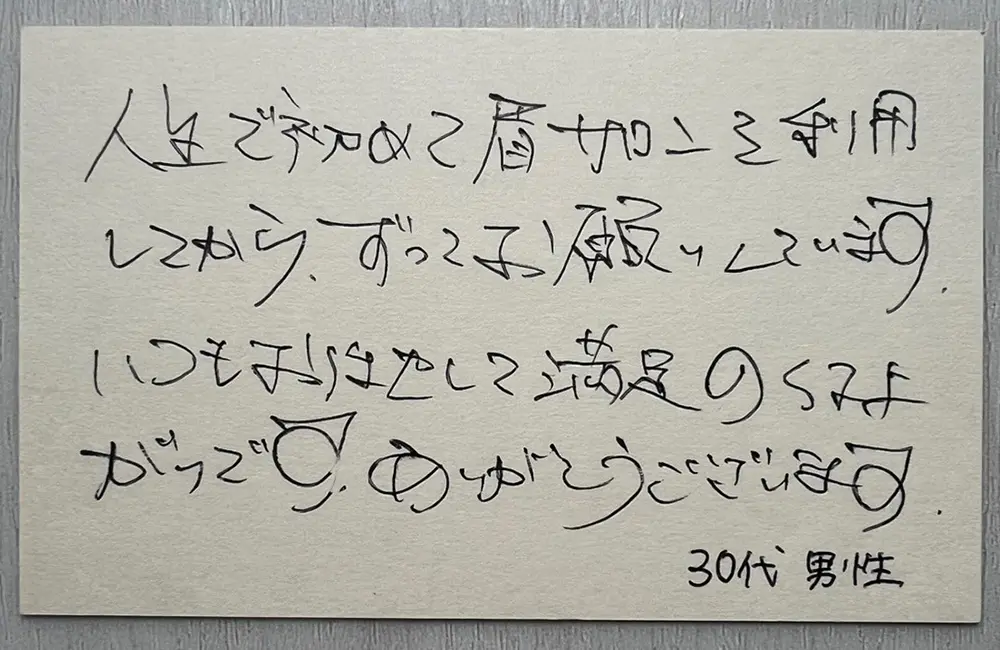 人生で初めて眉サロンを利用
してから、ずっとお願いしています。
いつもお任せして満足のできよ
がりです。ありがとうございます。
30代 男性